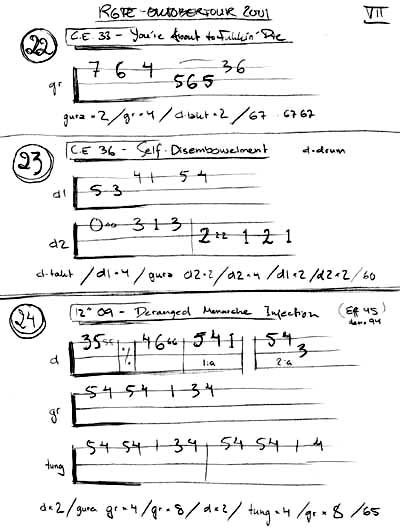 RGTE - OKTOBERTOUR 2001 VII
22 C.E. 33 - You're About to Fuckin' Die
7 6 4 565 36
gr
gura = 2 / gr = 4 / d-takt = 2 / 67 6767
23 C.E 36 - Self-Disembowelment d=drum
d1 5 3 4 1 5 4
d2 0 00 3 1 3 2 22 1 2 1
d-takt / d1=4 / gura d2=2 / d2=4 / d1=2 / d2=2 / 60
24 12" 09 - Deranged Menarche Injection (Eff 45
dem. 94)
d 35 55 % 46 66 5 4 1 5 4 3
1:a 2:a
gr 54 54 1 34
tung 54 54 1 34 54 54 1 4
d=2 / gura gr=4 / gr=8 / d=2 / tung=4 / gr=8 / 65